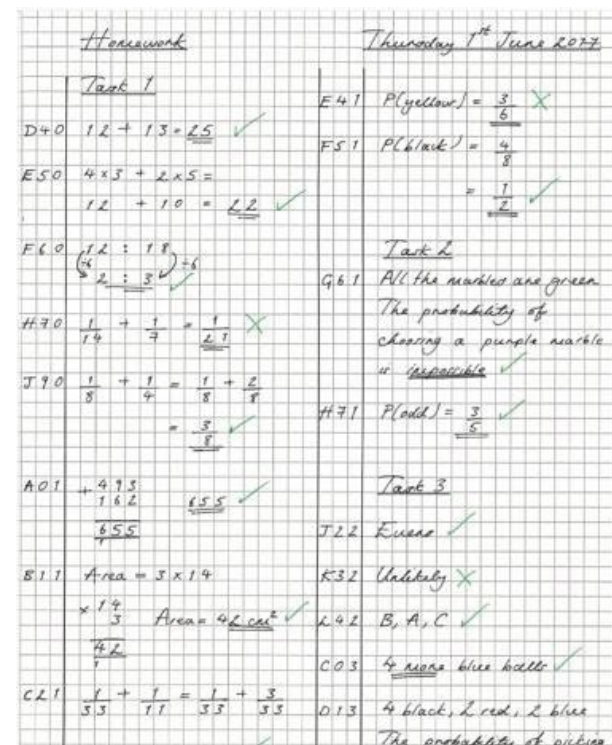 Homework
Thursday 1st June 2017
Task 1
D40 12 + 13 = 25
E50 4 × 3 + 2 × 5 =
12 + 10 = 22
F60 12 : 18
÷6 ÷6
2 : 3
H70 1/14 + 1/7 = 1/21
J90 1/8 + 1/4 = 1/8 + 2/8
= 3/8
A01 + 493
162
655
1
655
B11 Area = 3 × 14
× 14
3
42
1
Area = 42 cm²
C21 1/33 + 1/11 = 1/33 + 3/33
E41 P(yellow) = 3/6
F51 P(black) = 4/8
= 1/2
Task 2
G61 All the marbles are green
The probability of
choosing a purple marble
is impossible
H71 P(odd) = 3/5
Task 3
J22 Evens
K32 Unlikely
L42 B, A, C
C03 4 more blue balls
D13 4 black, 2 red, 2 blue
The probability of picking